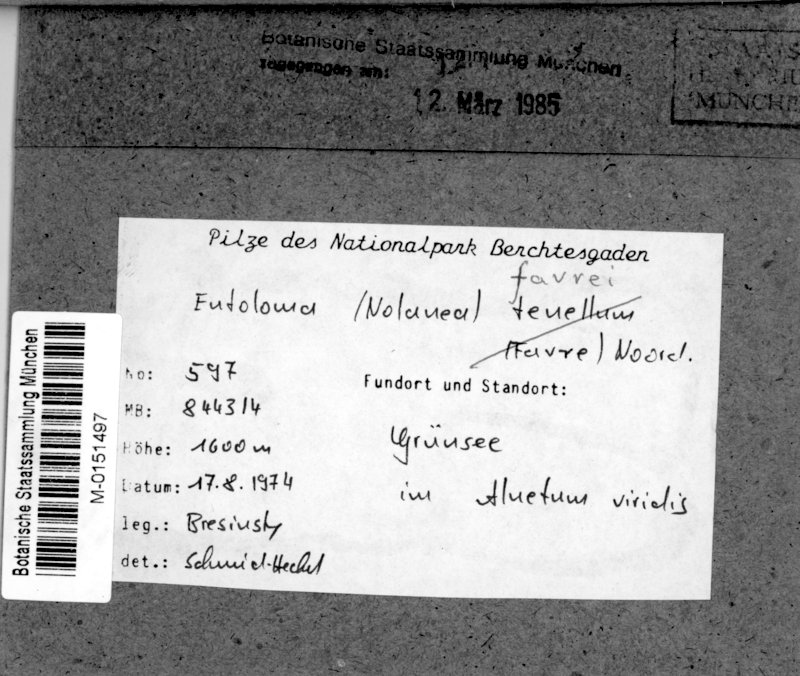 Botanische Staatssammlung München
12. März 1985
MÜNCHE
Pilze des Nationalpark Berchtesgaden
favrei
Entoloma (Nolanea) tenellum
(Favre) Noord.
No: 597
Fundort und Standort:
MB: 8443/4
Höhe: 1600 m
Grünsee
Datum: 17.8.1974
im Alnetum viridis
leg.: Bresinsky
det.: Schmid-Heckel
Botanische Staatssammlung München
M-0151497